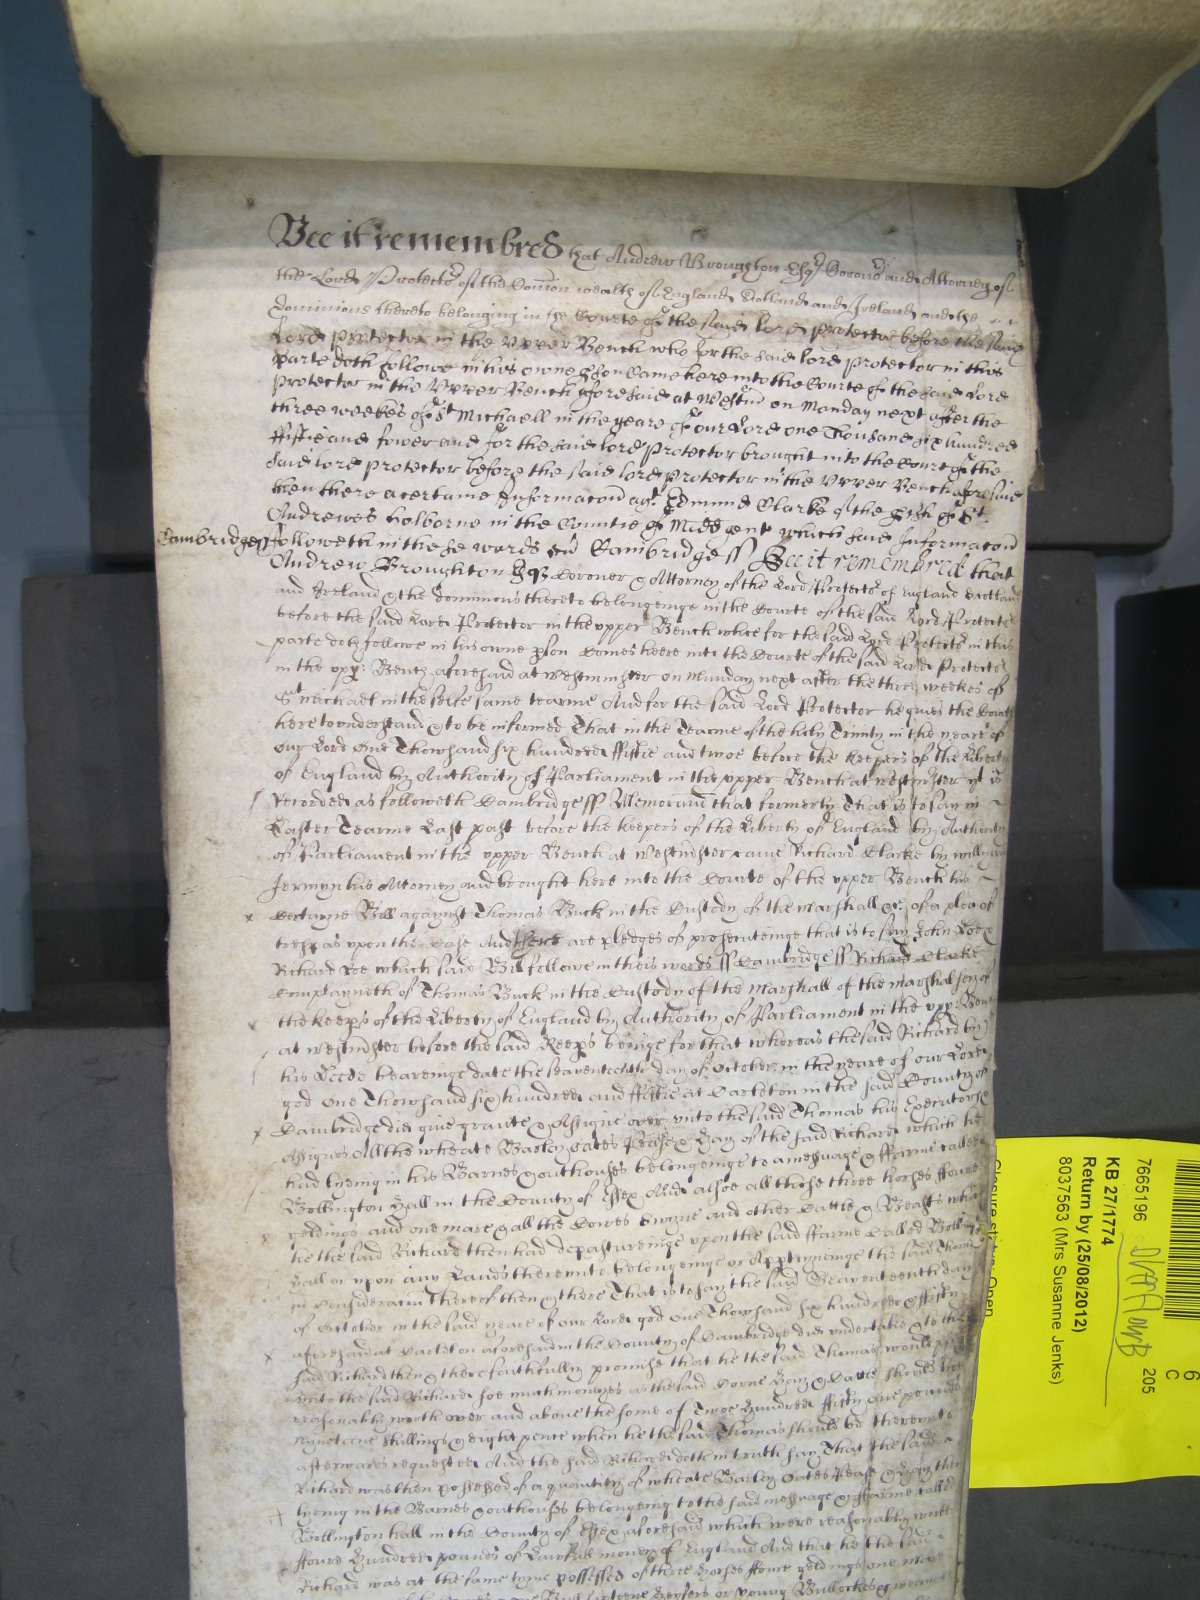 Bee it remembred that Andrew Broughton Esqr Coronr and Attorney of
the Lord Protectr of the Comon wealth of England Scotland and Ireland and the
Dominions thereto belonging in the Courte of the said Lord Protector before the said
Lord Protector in the Upper Bench who for the said Lord Protector in this
parte doth followe in his owne pson Came here into the Courte of the said Lord
Protector in the Upper Bench aforesaid at Westmr on Monday next after the
three weekes of St Michaell in the yeare of our Lord one Thousand six hundred
fiftie and fower and for the said Lord Protector brought into the Court of the
said Lord Protector before the said Lord Protector in the Upper Bench aforesaid
then there a certaine Informacon agt Edmund Clarke of the pish of St
Andrewes holborne in the Countie of Midd gent which said Informacon
Cambridge ss followeth in these words Cambridge ss Bee it remembred that
Andrew Broughton Esqr Coroner & Attorney of the Lord Protectr of England Scotland
and Ireland & the Dominions thereto belongeinge in the Courte of the said Lord Protector
before the said Lord Protector in the upper Bench whoe for the said Lord Protector in this
parte doth followe in his owne pson Comes heere into the Courte of the said Lord Protector
in the uppr Bench aforesaid at Westminster on Munday next after the three weekes of
St Michaell in the selfe same tearme And for the said Lord Protector he gives the Courte
here to understand & to be informed That in the Tearme of the holy Trinity in the yeare of
our Lord One Thowsand six hundred fiftie and twoe before the keepers of the Liberty
of England by Authority of Parliament in the upper Bench at Westminster it is
Recorded as followeth Cambridge ss Memorand that formerly That is to say in
Easter Tearme Last past before the keepers of the Liberty of England by Authority
of Parliament in the upper Bench at Westminster came Richard Clarke by William
Jermyn his Attorney and brought here into the Courte of the upper Bench his
Certayne Bill agaynst Thomas Buck in the Custody of the Marshall &c of a plea of
trespas upon the Case And there are pledges of prosecuteinge that is to say John Doe &
Richard Roe which said Bill followe in theis words ss Cambridge ss Richard Clarke
Complayneth of Thomas Buck in the Custody of the Marshall of the Marshalsey of
the keeps of the Liberty of England by Authority of Parliament in the uppr Bench
at Westminster before the said Keeps beinge for that whereas the said Richard by
his Deede beareinge date the seaventeenth day of October in the yeare of our Lord
god One Thowsand six hundred and fiftie at Carleton in the said County of
Cambridge did give graunte & Assigne over unto the said Thomas his Executors &
Assignes All the wheate Barley Oates Pease & Hay of the said Richard which he
had lyeing in his Barnes & outhouses belongeinge to a messuage & ffarme called
Bollington Hall in the County of Essex And alsoe all those three horses ffoure
geldings and one mare & all the Cowes Swyne and other Cattle & Beasts which
he the said Richard then had depastureinge upon the said ffarme Called Bollington
Hall or upon any Lands thereunto belongeinge or Apptayneinge the said Thomas
in Consideracon Thereof then & there That is to say the said Seaventeenth day
of October in the said yeare of our Lord god One Thowsand six hundred & fiftie
aforesaid at Carleton aforesaid in the County of Cambridge did undertake & to the
said Richard then & there faithfully promise that he the said Thomas would pay
unto the said Richard soe much moneys as the said Corne Hay & Cattle should bee
reasonably worth over and above the some of Twoe Hundred fifty one pounds
nyneteene shillings & eight pence when he the said Thomas should be thereunto
afterwards requested And the said Richard doth in truth say That the said
Richard was then possessed of a quantity of wheate Barley Oates Pease & Hay then
lyeing in the Barnes & outhouses belongeing to the said messuage & ffarme called
Bollington hall in the County of Essex aforesaid which were reasonably worth
ffoure Hundred pounds of Lawfull money of England And that he the said
Richard was at the same tyme possessed of three horses ffoure geldings one mare
Heyfers or young Bullockes
7665196
KB 27/1774
Return by (25/08/2012)
8037563 (Mrs Susanne Jenks)
Closure status: Open
6
C
205